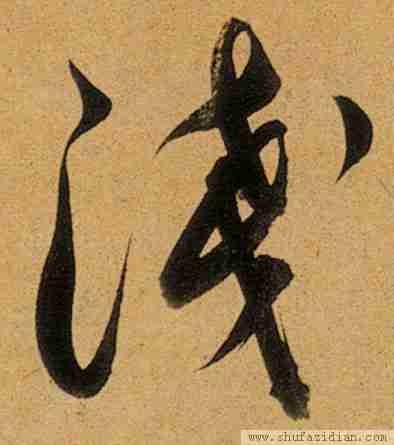 淺
www.shufazidian.com